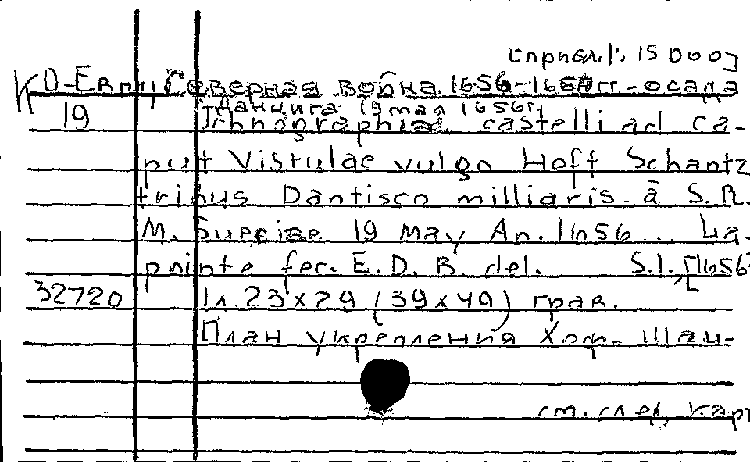 [прибл. 1:15 000]
К D-Евр Северная война 1656-1660гг-осада
Данцига 19 мая 1656г.
19 Ichnographia castelli ad ca-
put Vistulae vulgo Hoft Schantz
tribus Dantisco milliaris à S.R.
M. Sueciae 19 May An. 1656. La-
pointe fec. E. D. B. del. S.l., [1656
32720 1л. 23x29 (39x49) грав.
План укрепления Хоф-Шан-
см. след. карт